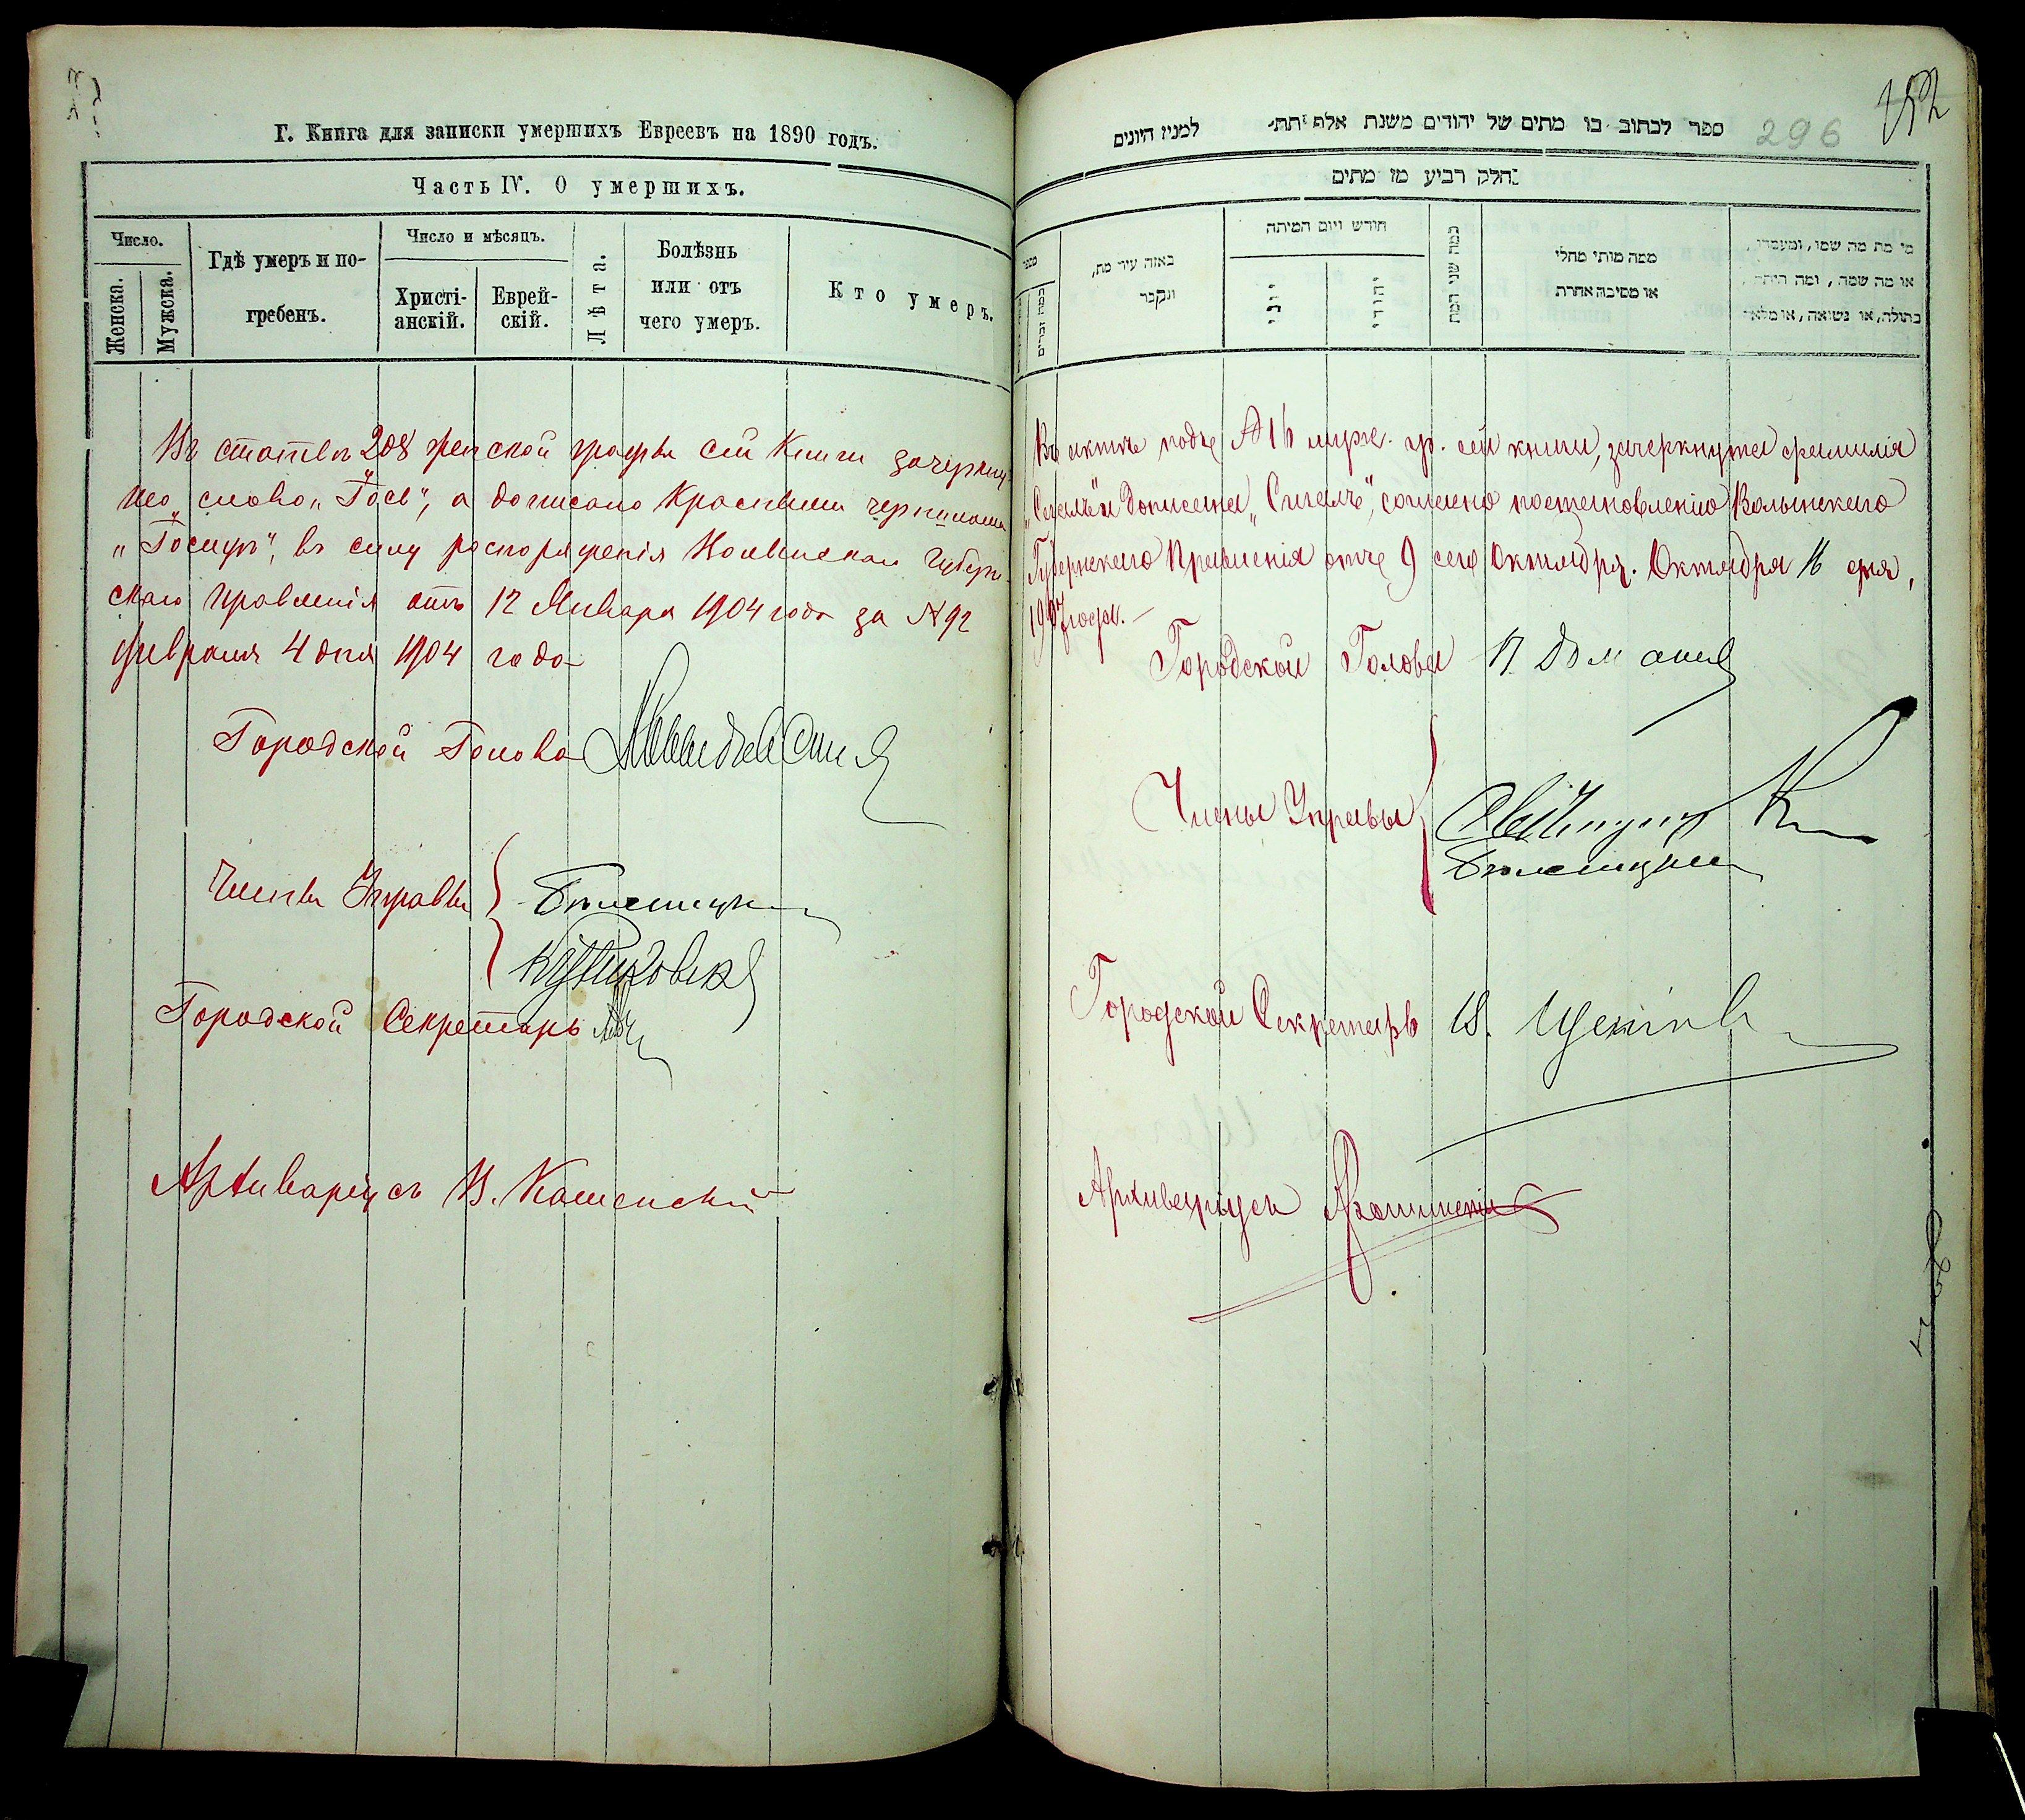 Г. Книга для записки умершихъ Евреевъ на 1890 годъ.
Часть IV. О умершихъ.
Число.
Женска.
Мужска.
Гдѣ умеръ и по-
гребенъ.
Число и мѣсяцъ.
Христі-
анскій.
Еврей-
скій.
Лѣта.
Болѣзнь
или отъ
чего умеръ.
Кто умеръ.
Въ статьѣ 208 женской графы сей Книги зачеркну-
то слово „Гось“, а дописано Красными чернилами
в силу распоряженія Волынскаго Губерн-
скаго Правленія отъ 12 Января 1904 года за № 92
Февраля 4 дня 1904 года
Городской Голова
Члены Управы
Городской Секретарь
Архиваріусъ В. Кошенскій
296
ספר לכתוב בו מתים של יהודים משנת אלף תת״ למנין היונים
חלק רביע מז מתים
מספר
באזה עיר מת,
ונקבר
חודש ויום המיתה
יוני
יהודי
כמה שני המת
ממה מותי מחלי
או מסיבה אחרת
מי מת מה שמו, ומעמדו,
או מה שמה, ומה היתה,
בתולה, או נשואה, או מלאי
Въ актѣ подъ № 16 мужс. гр. сей книги, зачеркнута фамилія
и дописана „Сигалъ“, согласно постановленію Волынскаго
Губернскаго Правленія отъ 9 сего Октября. Октября 16 дня,
1907 года.—
Городской Голова
Члены Управы
Городской Секретарь
Архиваріусъ